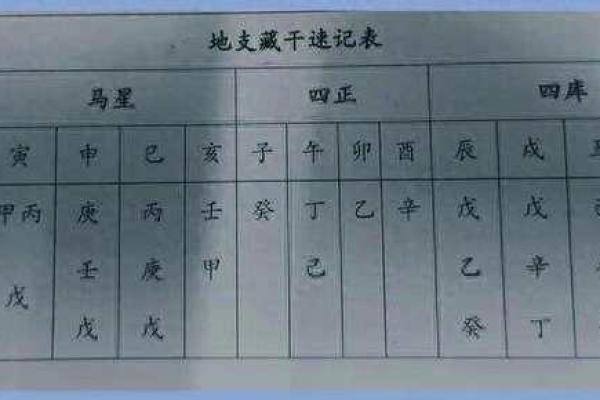 地支藏干速记表
马星 四正 四库
寅 申 巳 亥 子 午 卯 酉 辰 戌
甲丙 庚 丙 壬 癸 丁 乙 辛 戊 戊
戊 壬 庚 甲 己 乙 辛
戊 戊 癸 丁